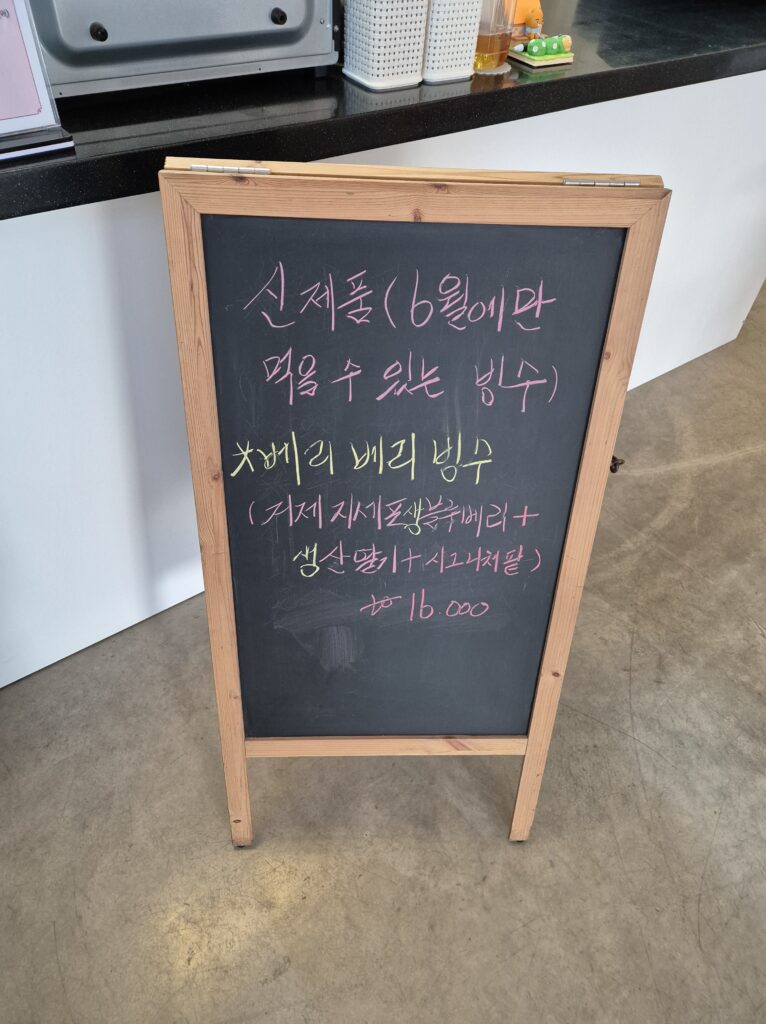 신제품(6월에만
먹을 수 있는 빙수)
*베리 베리 빙수
(거제 지세포생블루베리+
생산딸기+시그니처팥)
₩ 16.000